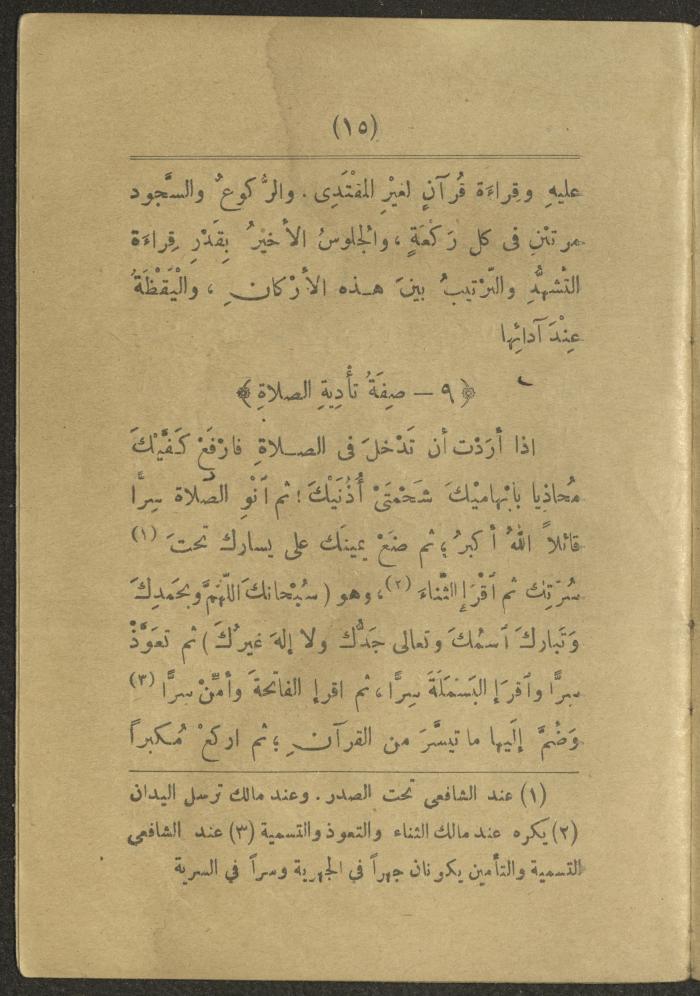 (١٥)
عليهِ وقِراءَة قُرآنٍ لغيْرِ المقْتَدِى . والرُّكوعُ والسَّجود
مرتيْنِ فى كل رَكْعَةٍ ، والجلوسُ الأخيرُ بِقَدْرِ قِراءَة
التَّشهُّدِ والتّرْتيبُ بينَ هـذه الأرْكانِ ، والْيَقْظَةُ
عِنْدَ آدائِها
﴿ ٩ — صِفَةُ تأْدِيةِ الصلاةِ ﴾
اذا أرَدْت أن تَدْخلَ فى الصـلاةِ فارْفَعْ كَفَّيْكَ
مُحاذِيا بابْهاميْكَ شَحْمَتَىْ أُذُنَيْكَ ؛ ثم آنْوِ الصَّلاة سِرًّا
قائلاً اللهُ أكبرُ ؛ ثم ضَعْ يمينَك على يسارك تحتَ (١)
سُرَّتِك ثم آقْرَإِ الثّناءَ (٢) ، وهو ( سُبْحانكَ اللّهُمَّ وبحَمدِكَ
وَتَبارك آسمُكَ وتعالى جَدُّك ولا إلهَ غيرُكَ ) ثم تعَوَّذْ
سِرًّا وآقرَإ البَسْمَلَةَ سِرًّا ، ثم اقرإ الفاتحةَ وأمِّنْ سِرًّا (٣)
وَضُمَّ إلَيها ما تيسَّرَ من القرآنِ ؛ ثم اركعْ مُكبراً
(١) عند الشافعى تحت الصدر . وعند مالك ترسل اليدان
(٢) يكره عند مالك الثناء والتعوذ والتسمية (٣) عند الشافعى
التسمية والتأمين يكونان جهراً في الجهرية وسراً في السرية